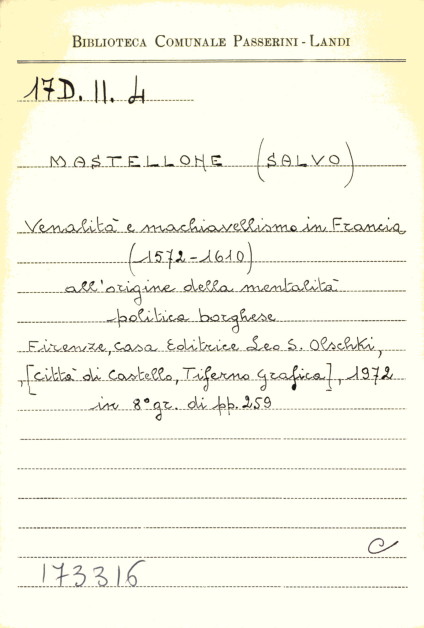 BIBLIOTECA COMUNALE PASSERINI - LANDI
17D. II. 4
MASTELLONE (SALVO)
Venalità e machiavellismo in Francia
(1572-1610)
all'origine della mentalità
politica borghese
Firenze, Casa Editrice Leo S. Olschki,
,[Città di Castello, Tiferno Grafica], 1972
in 8° gr. di pp. 259
C
173316